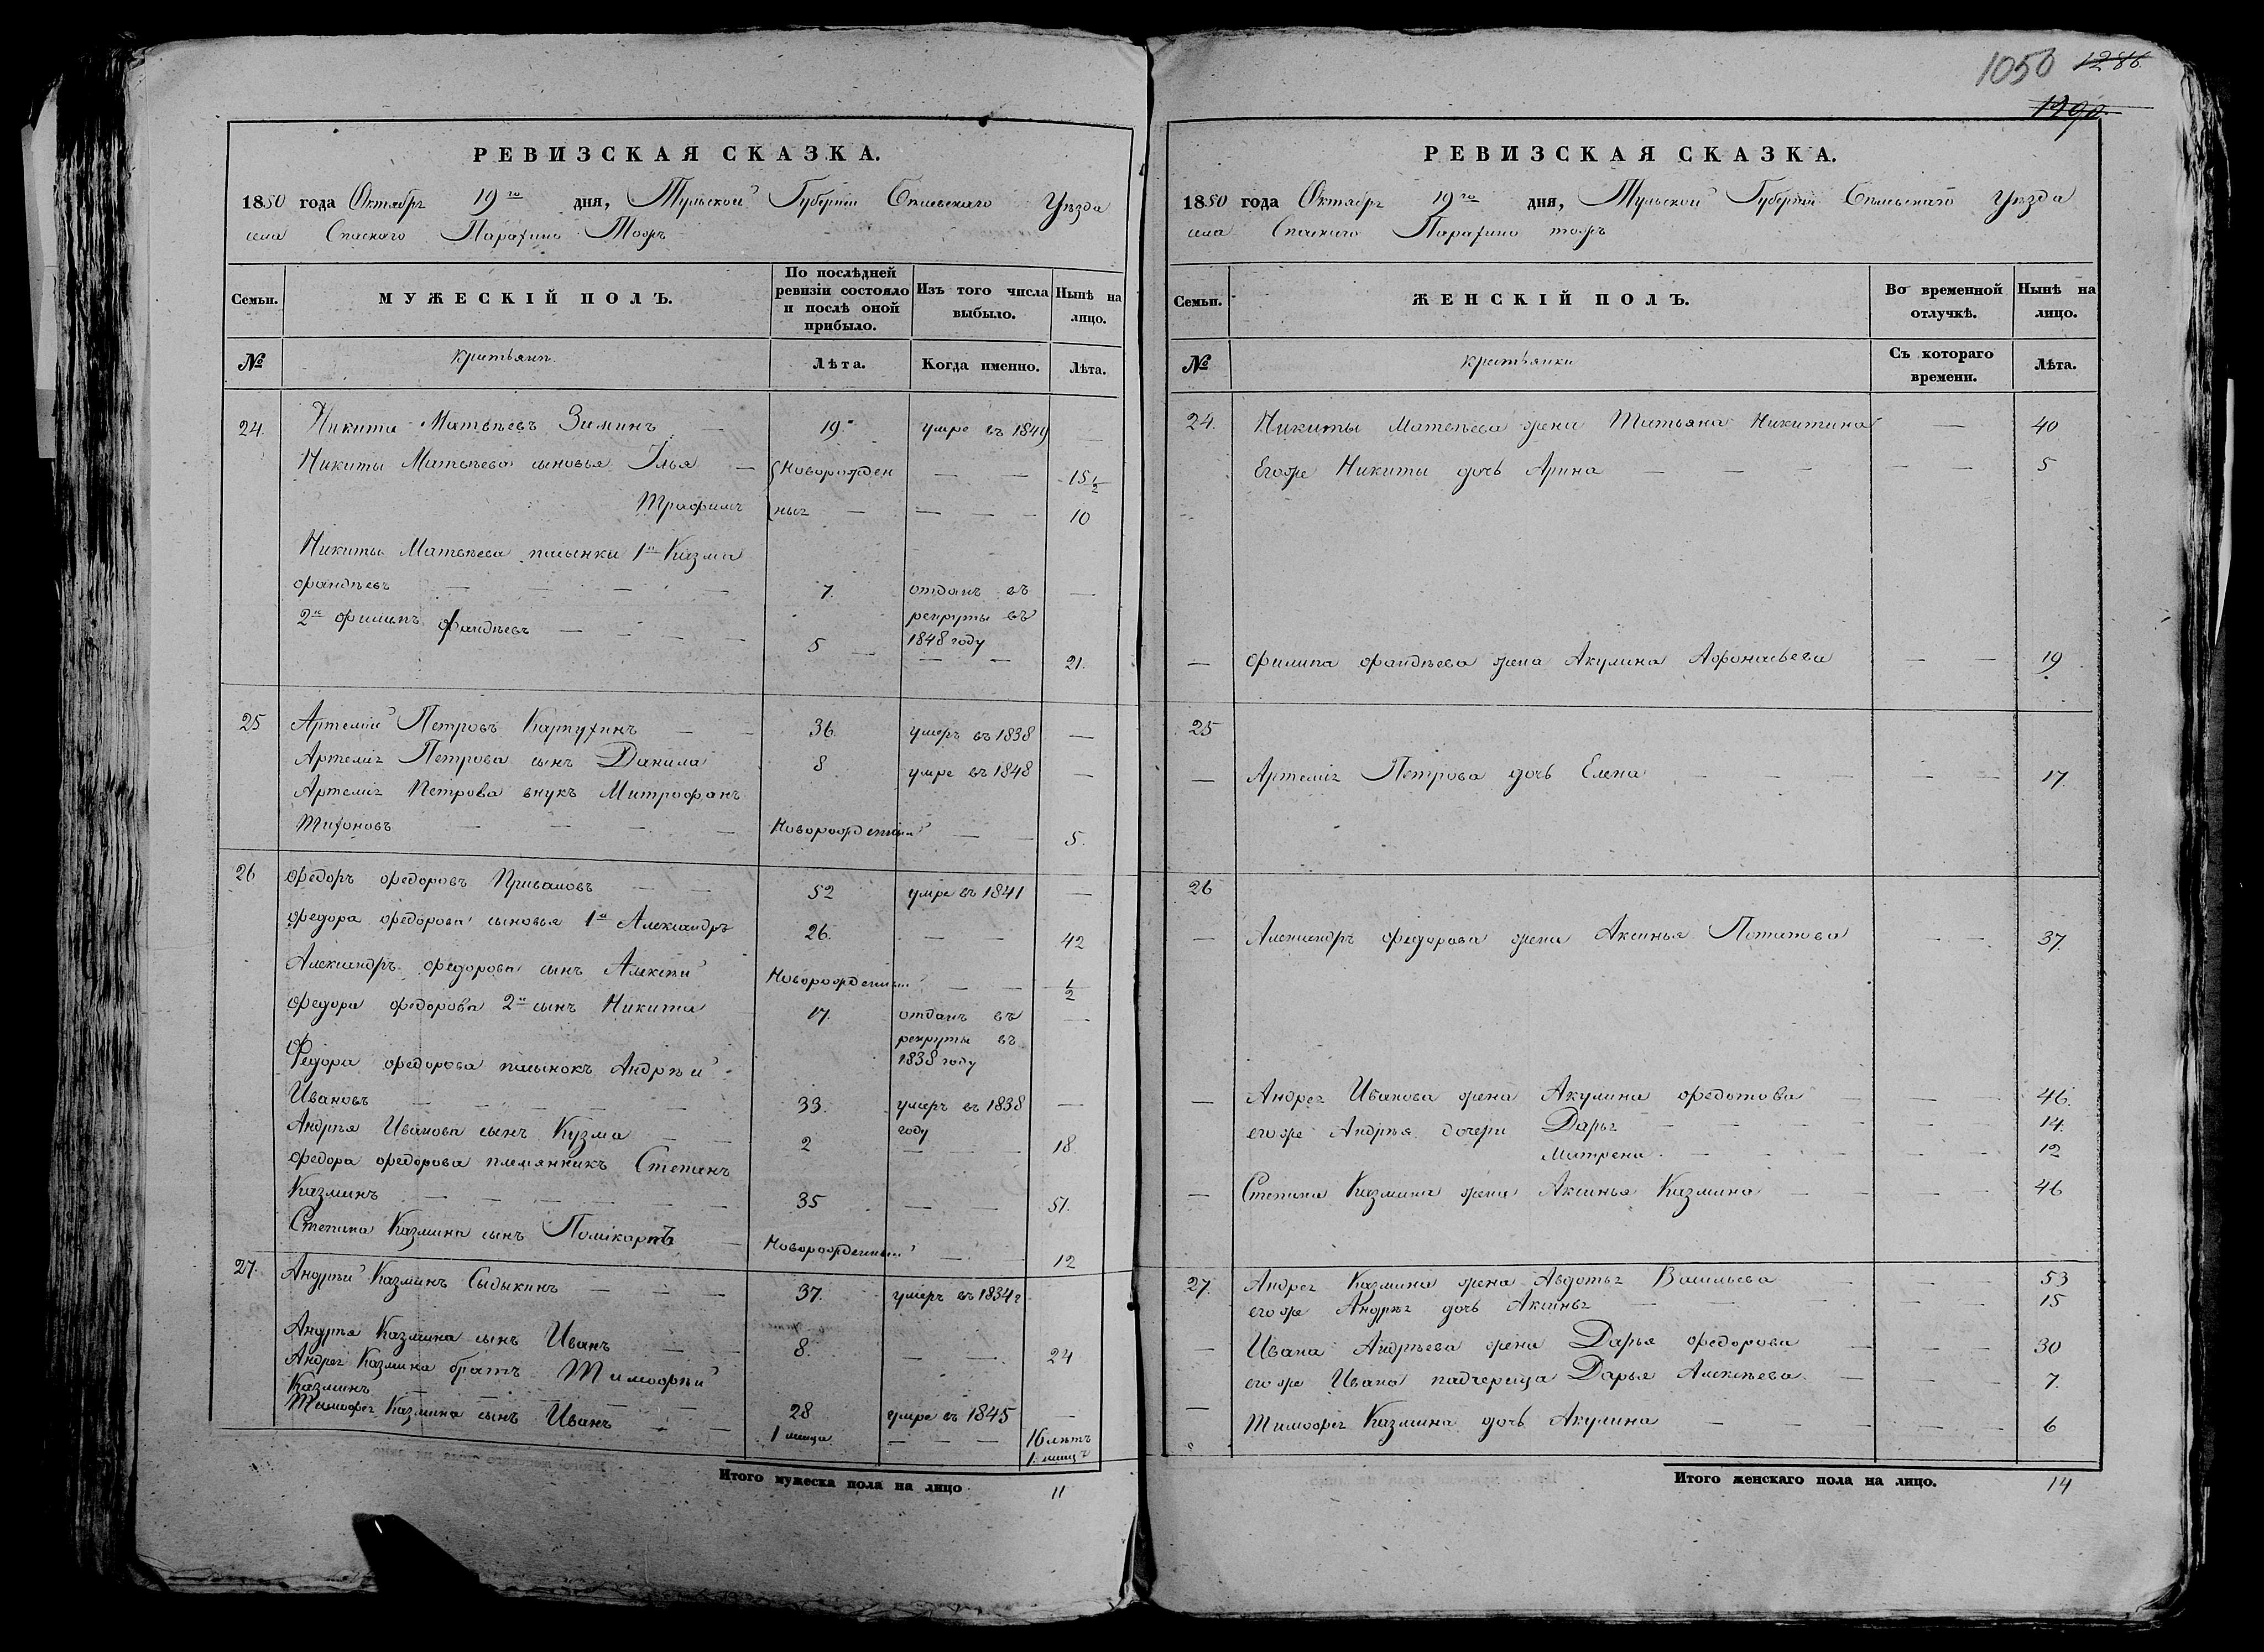 1050 1286.
1290.
РЕВИЗСКАЯ СКАЗКА.
1850 года Октября 19го дня, Тульской Губерніи Бѣлевскаго Уѣзда
села Спаскаго
МУЖЕСКІЙ ПОЛЪ.
Семьи.
По послѣдней ревизіи состояло и послѣ оной прибыло.
Изъ того числа выбыло.
Нынѣ на лицо.
№ Крестьянъ. Лѣта. Когда именно. Лѣта.
24. Никита Матвѣевъ Зиминъ — 19. умре въ 1849 —
Никиты Матвѣева сыновья Илья — Новорожден — — 15 1/2
Трафимъ ные — — — — 10
Никиты Матвѣева пасынки 1й Казма
Фандѣевъ — — — — 7. отданъ въ —
рекруты въ
1848 году
2й Филипъ Фандѣевъ — — — — 5 — — — 21.
25 Артемій Петровъ Карпухинъ — — 36. умеръ въ 1838 —
Артемія Петрова сынъ Данила 8 умре въ 1848 —
Артемія Петрова внукъ Митрофанъ
Тихоновъ — — — — Новорожденный — — 5.
26 Федоръ Федоровъ Приваловъ — — 52 умре въ 1841 —
Федора Федорова сыновья 1й Александръ 26. — — 42
Александръ Федорова сынъ Алексѣй Новорожденный — — 1/2
Федора Федорова 2й сынъ Никита 17. отданъ въ —
рекруты въ
1838 году
Федора Федорова пасынокъ Андрѣй
Ивановъ — — — — 33. умеръ въ 1838 —
году
Андрѣя Иванова сынъ Кузма — — 2 — — — 18.
Федора Федорова племянникъ Степанъ
Казминъ — — — — — 35 — — 51.
Степана Казмина сынъ Поликарпъ — Новорожденный — 12
27. Андрѣй Казминъ Сыдыкинъ — — — 37. умеръ въ 1834г
Андрѣя Казмина сынъ Иванъ — — 8. — — 24
Андрея Казмина братъ Тимофѣй
Казминъ — — — — — 28 умре въ 1845 —
Тимофея Казмина сынъ Иванъ — — 1 месяца — — — 16 лѣтъ
1. месяцъ
Итого мужеска пола на лицо 11
РЕВИЗСКАЯ СКАЗКА.
1850 года Октября 19го дня, Тульской Губерніи Бѣлевскаго Уѣзда
села Спаскаго
Семьи.
ЖЕНСКІЙ ПОЛЪ.
Во временной отлучкѣ.
Нынѣ на лицо.
№ Крестьянки Съ котораго времени. Лѣта.
24. Никиты Матвѣева жена Татьяна Никитина — 40
Егоже Никиты дочь Арина — — — — — 5
— Филипа Фандѣева жена Акулина Афонасьева — — 19
25
— Артемія Петрова дочь Елена — — — — — 17.
26
— Александръ Федорова жена Аксинья Потапова — — 37.
— Андрея Иванова жена Акулина Федотова — — — 46.
егоже Андрѣя дочери Дарья — — — — — 14.
Матрена. — — — — — 12
— Степана Казмина жена Аксинья Казмина — — — 46
27. Андрея Казмина жена Авдотья Васильева — — — 53
егоже Андрѣя дочь Аксинья — — — — — 15
— Ивана Андрѣева жена Дарья Федорова — — — 30
егоже Ивана падчерица Дарья Алексѣева — — — 7.
— Тимофея Казмина дочь Акулина — — — — 6
Итого женскаго пола на лицо. 14